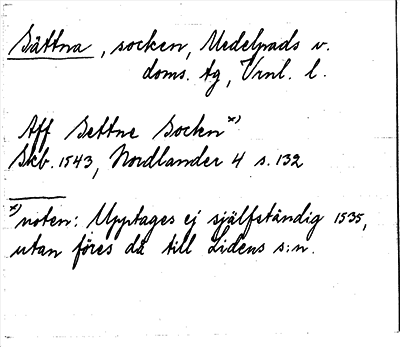 Sättna, socken, Medelpads v.
doms. tg, Vrnl. l.
Aff Settne Sockn x)
Skb. 1543, Nordlander 4 s. 132
x) noten: Upptages ej självständig 1535,
utan föres då till Lidens s:n.